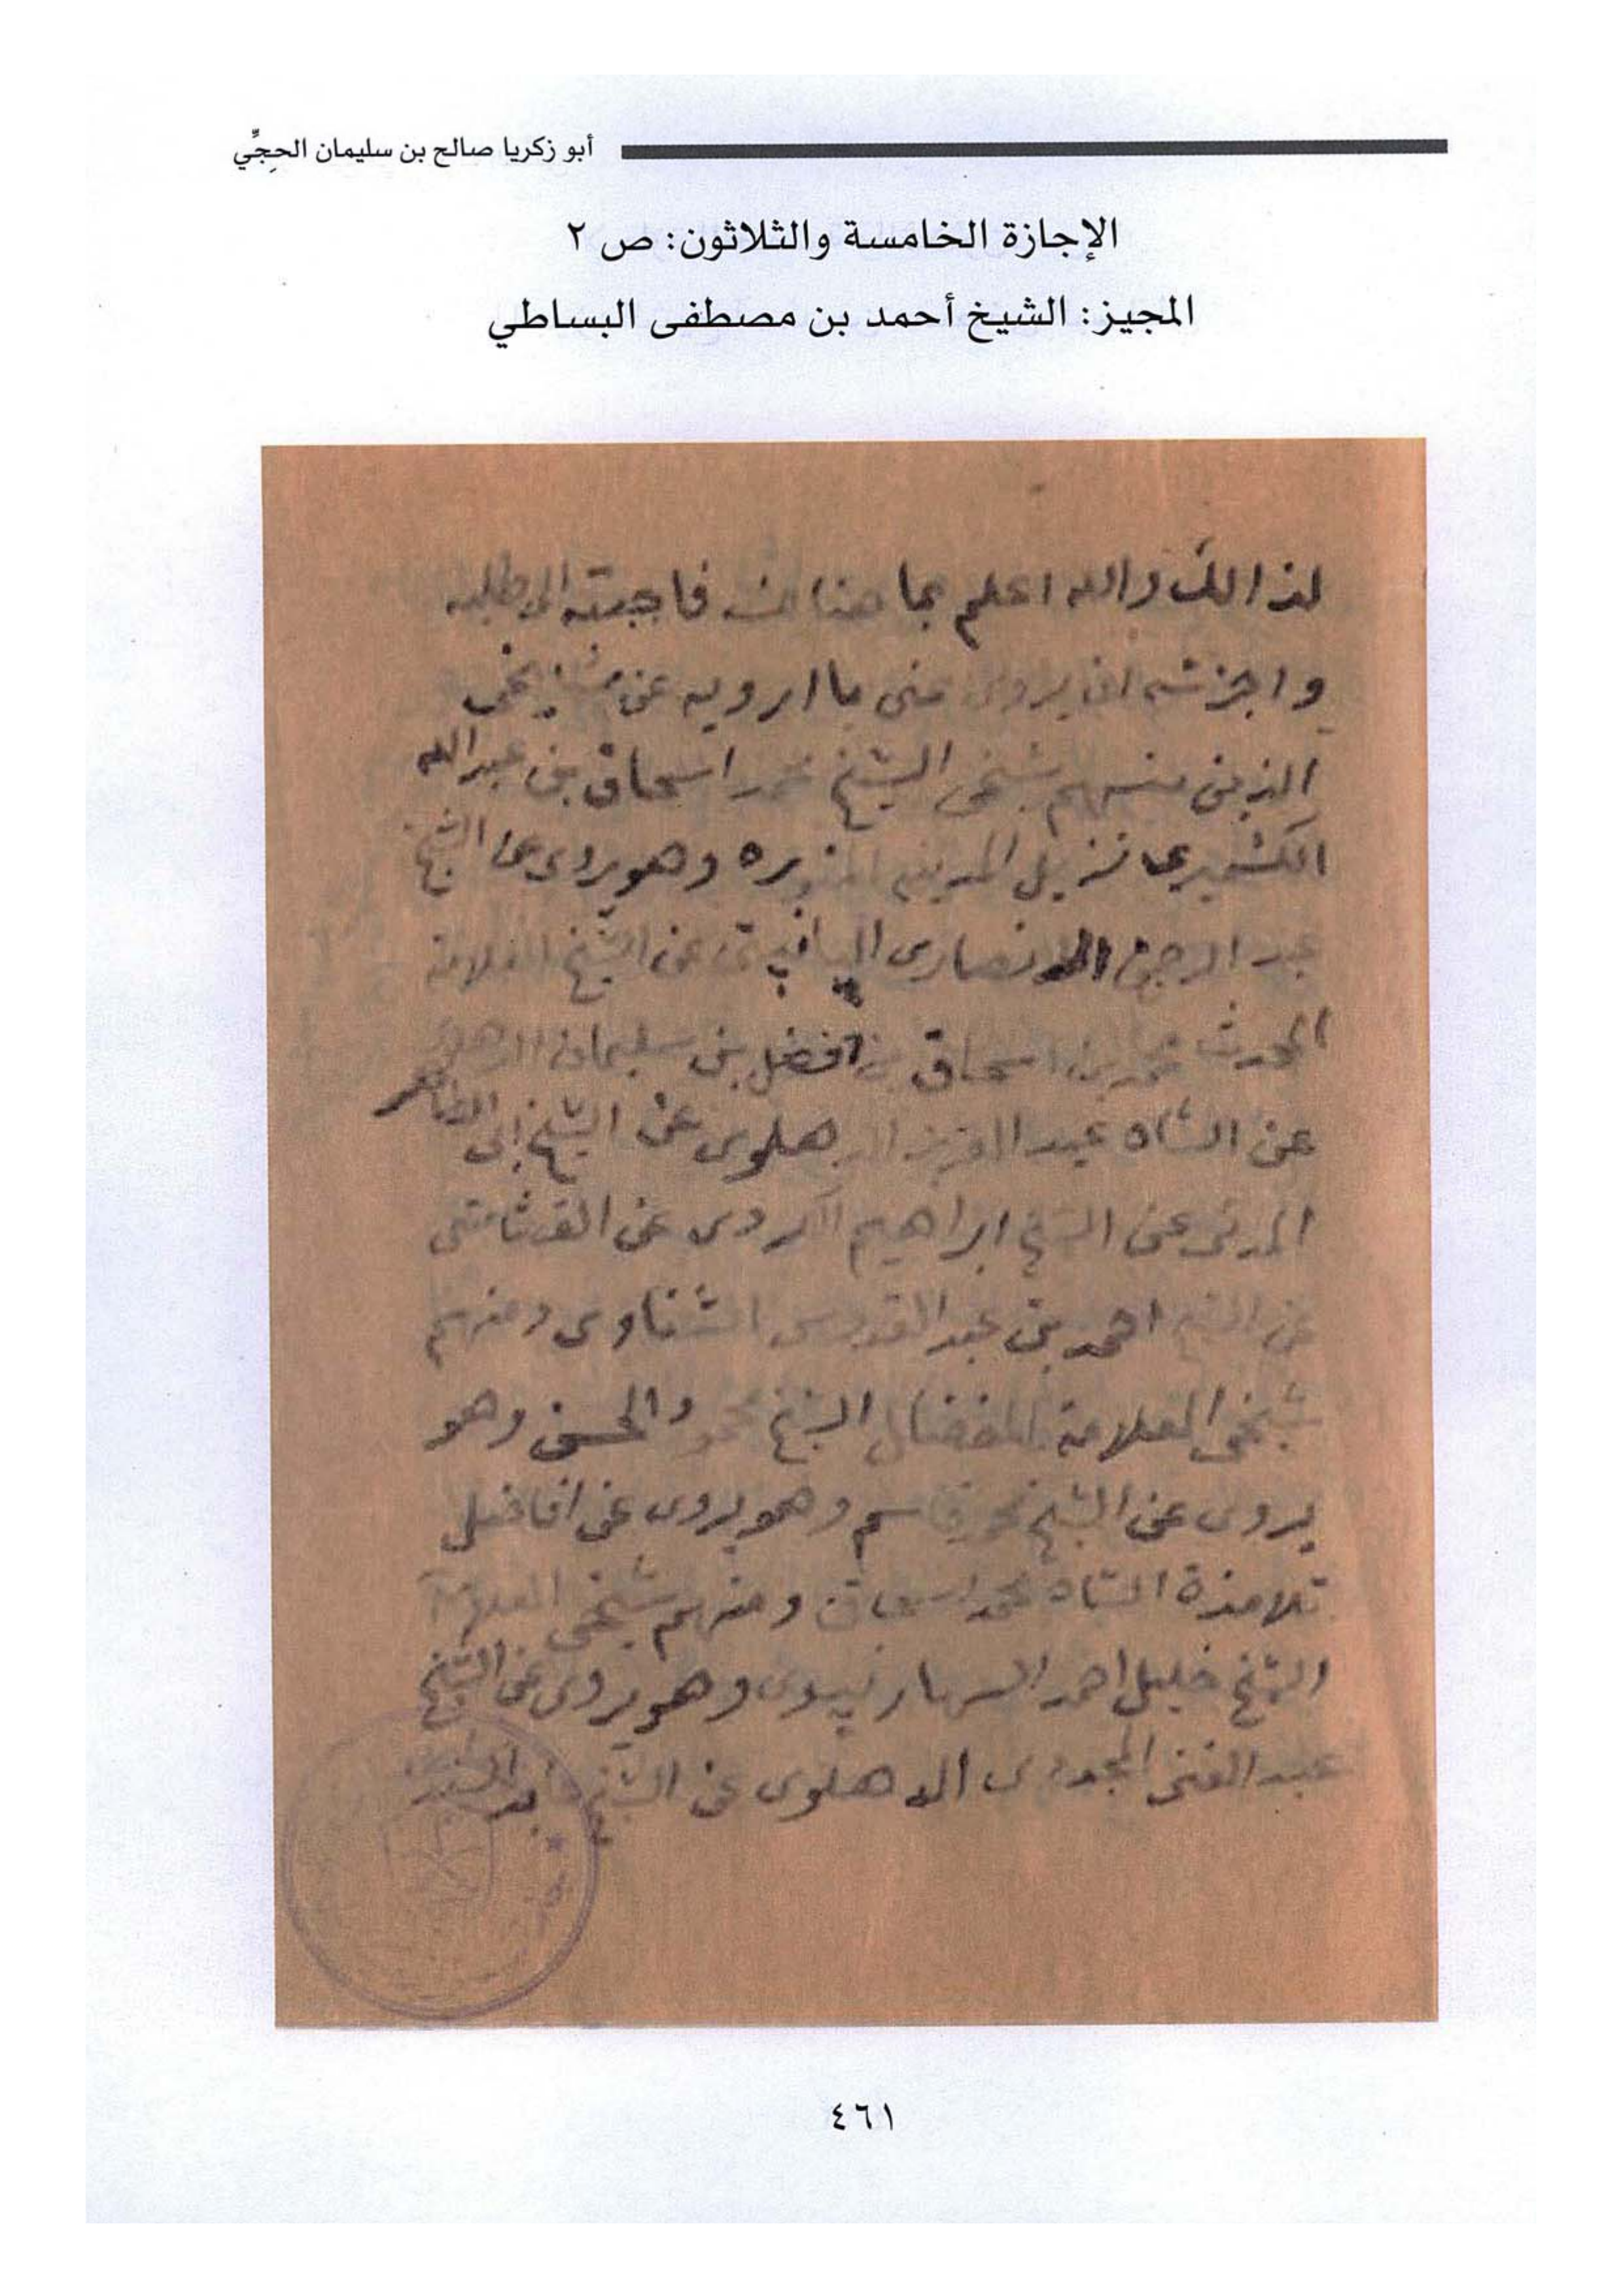 أبو زكريا صالح بن سليمان الحجِّي
الإجازة الخامسة والثلاثون: ص ٢
المجيز: الشيخ أحمد بن مصطفى البساطي
لذالك والله اعلم بما هنالك فاجبته الى طلبه
واجزته ان يروى عنى ما ارويه عن مشايخى
الذين منهم شيخى الشيخ محمد اسحاق بن عبدالله
الكشميرى نزيل المدينه المنوره وهو يروى عن الشيخ
عبد الرحمن الانصارى عن الشيخ العلامة
المحدث محمد اسحاق بن افضل بن سليمان الدهلوى
عن الشاه عبد العزيز الدهلوى عن الشيخ ابى الطاهر
المدنى عن الشيخ ابراهيم الكردى عن القشاشى
عن الشيخ احمد بن عبد القدوس الشناوى ومنهم
شيخى العلامة المفضال الشيخ محمود الحسن وهو
يروى عن الشيخ محمد قاسم وهو يروى عن افاضل
تلامذة الشاه محمد اسحاق ومنهم شيخى العلامة
الشيخ خليل احمد السهارنپورى وهو يروى عن الشيخ
عبد الغنى المجددى الدهلوى عن الشيخ عابد السندى
٤٦١